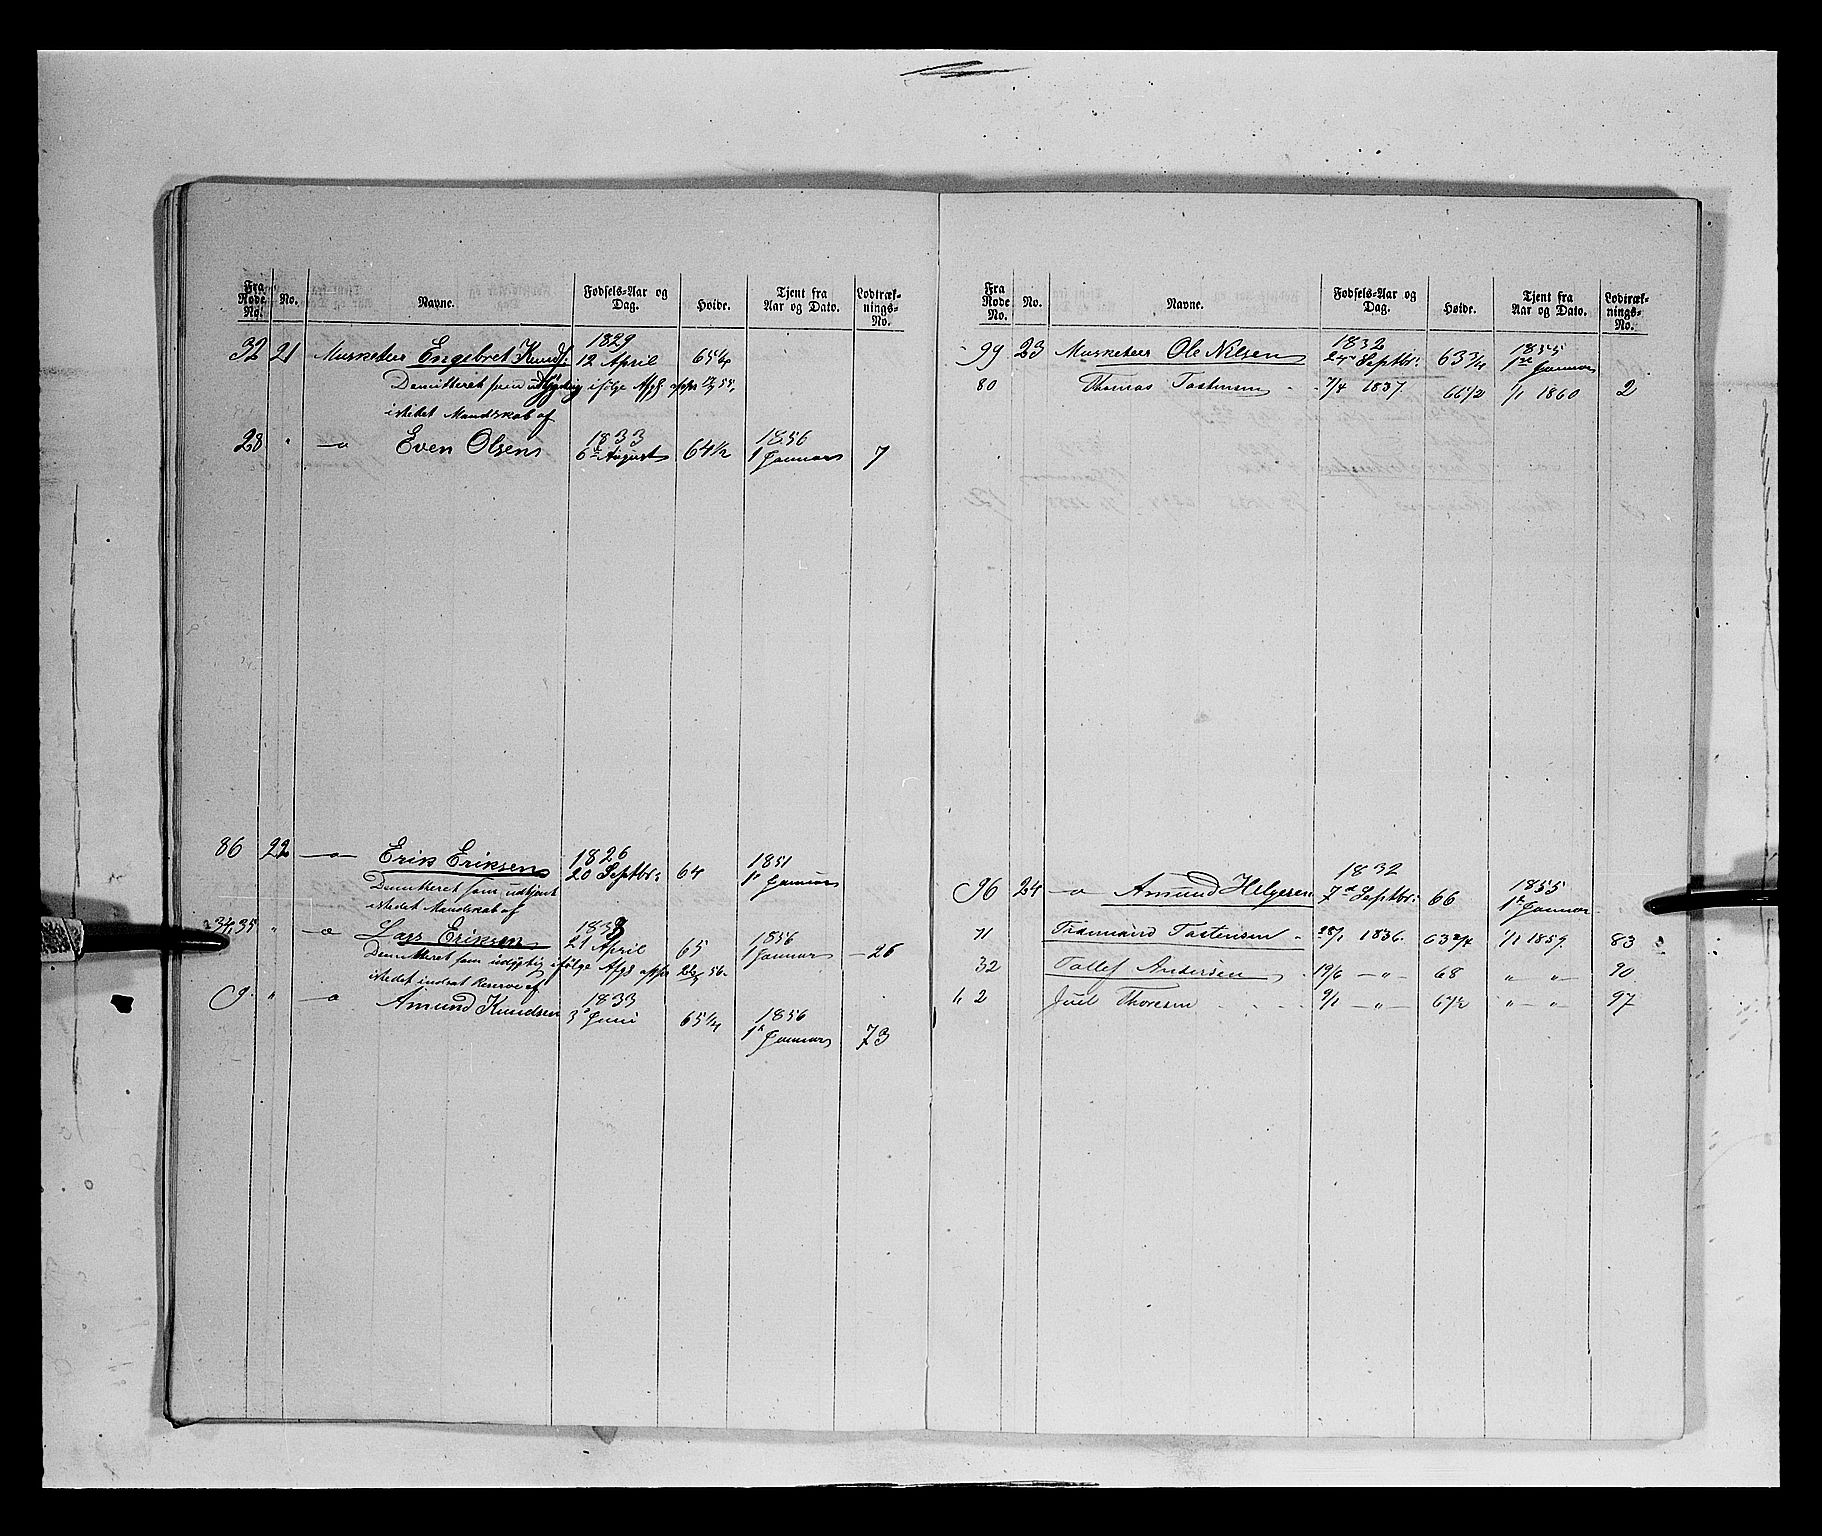 Fra Rode No. No. Navne. Fødsels-Aar og Dag. Høide. Tjent fra Aar og Dato. Lodtræknings-No.
1829
32 21 Musketeer Engebret Knuds. 12 April 65¼
Demitteret som udygtig ifølge
istedet Mandskab af
1833 1856
28 " —o Even Olsen 6te August 64½ 1 Januar 7
1826 1851
86 22 —o— Erik Eriksen 20 Septbr: 64 1e Januar
Demitteret som udtjent
istedet Mandskab af
1833 1856
34,35 " —o Lars Eriksen 21 April 65 1 Januar —26
Demitteret som udygtig ifølge
istedet indsat Reserve af
1833 1856
9. " —o Amund Knudsen 3e Juni 65¼ 1e Januar 73
Fra Rode No. No. Navne. Fødsels-Aar og Dag. Høide. Tjent fra Aar og Dato. Lodtræknings-No.
1832 1855
99 23 Musketeer Ole Nilsen Septbr: 63¾ 1ste Januar
80 Thomas Tostensen 7/4 1837 66½ 1/1 1860 2
1832 1855
96 24 —o Amund Helgesen 7de Septbr: 66 1e Januar
71 Tostensen 28/1 1836. 63¾ 1/1 1859. 83
32 Tollef Andersen 19/6 —"— 68 " —"— 90
2 Joel Thoresen 9/1 —"— 67½ " —"— 97